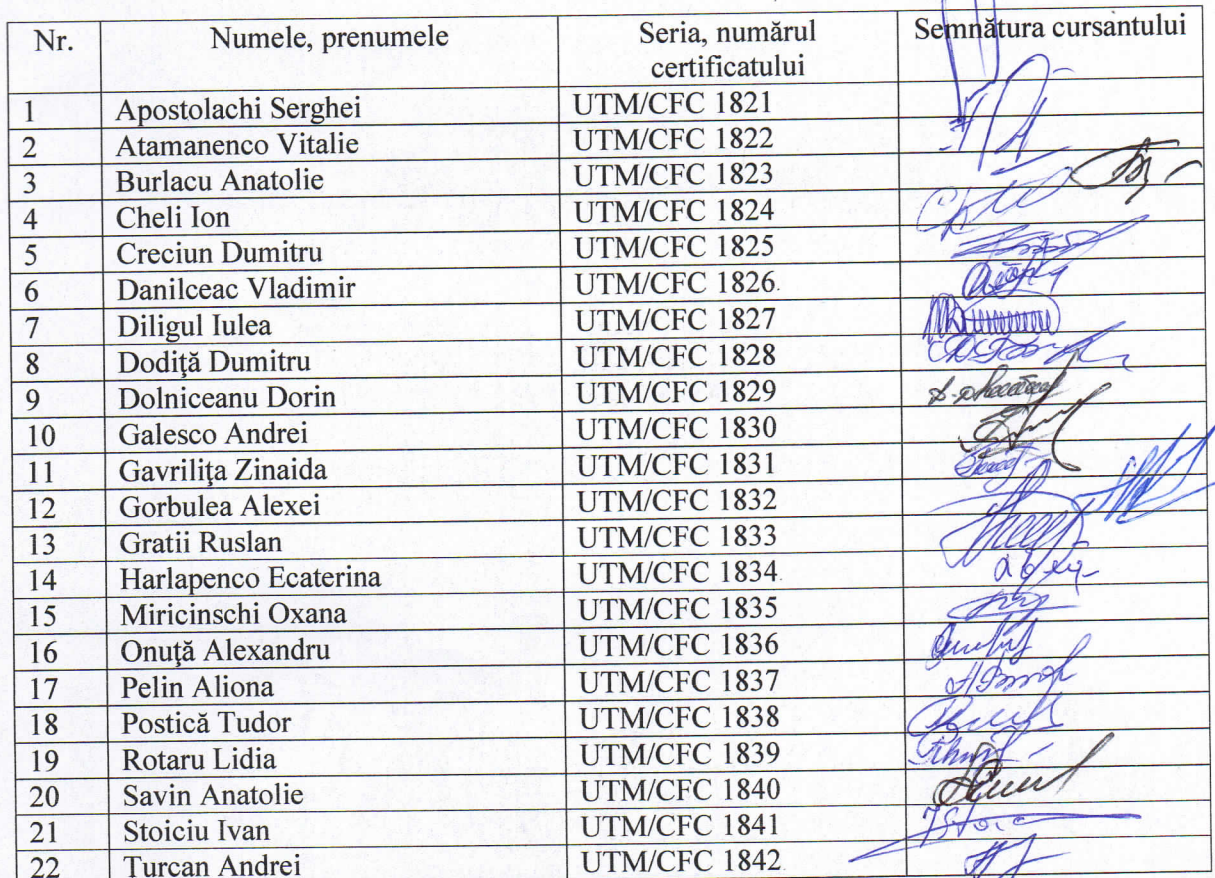 Nr. Numele, prenumele Seria, numărul certificatului Semnătura cursantului
1 Apostolachi Serghei UTM/CFC 1821
2 Atamanenco Vitalie UTM/CFC 1822
3 Burlacu Anatolie UTM/CFC 1823
4 Cheli Ion UTM/CFC 1824
5 Creciun Dumitru UTM/CFC 1825
6 Danilceac Vladimir UTM/CFC 1826
7 Diligul Iulea UTM/CFC 1827
8 Dodiţă Dumitru UTM/CFC 1828
9 Dolniceanu Dorin UTM/CFC 1829
10 Galesco Andrei UTM/CFC 1830
11 Gavriliţa Zinaida UTM/CFC 1831
12 Gorbulea Alexei UTM/CFC 1832
13 Gratii Ruslan UTM/CFC 1833
14 Harlapenco Ecaterina UTM/CFC 1834
15 Miricinschi Oxana UTM/CFC 1835
16 Onuţă Alexandru UTM/CFC 1836
17 Pelin Aliona UTM/CFC 1837
18 Postică Tudor UTM/CFC 1838
19 Rotaru Lidia UTM/CFC 1839
20 Savin Anatolie UTM/CFC 1840
21 Stoiciu Ivan UTM/CFC 1841
22 Turcan Andrei UTM/CFC 1842